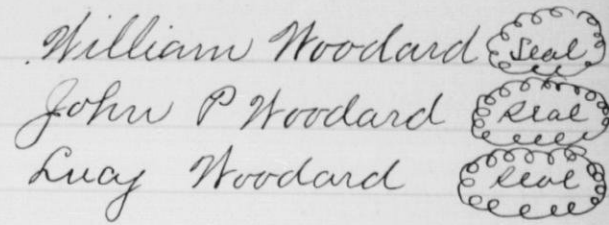 William Woodard Seal
John P Woodard Seal
Lucy Woodard Seal